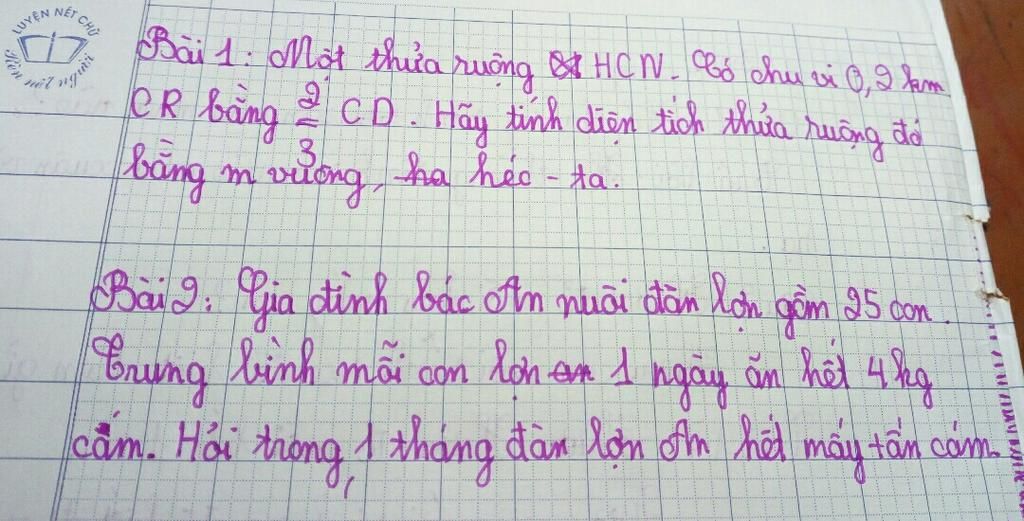 LUYỆN NÉT CHỮ
Rèn nết người
Bài 1: Một thửa ruộng HCN. Có chu vi 0,2 km
CR bằng 2/3 CD. Hãy tính diện tích thửa ruộng đó
bằng m vuông, ha héc - ta.
Bài 2: Gia đình bác An nuôi đàn lợn gồm 25 con.
Trung bình mỗi con lợn ăn 1 ngày ăn hết 4 kg
cám. Hỏi trong 1 tháng đàn lợn ăn hết mấy tấn cám.